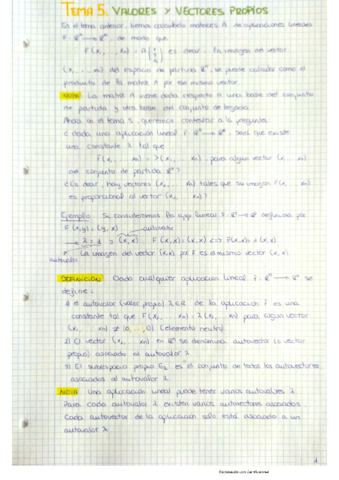 TEMA 5. VALORES Y VECTORES PROPIOS
En el tema anterior, hemos calculado matrices A de aplicaciones lineales
F: ℝⁿ → ℝᵐ de modo que
F(x₁, ... xₙ) = A es decir: la imagen del vector
(x₁, ... xₙ) del espacio de partida ℝⁿ, se puede calcular como el
producto de la matriz A por ese mismo vector.
NOTA: La matriz A viene dada respecto a una base del conjunto
de partida y otra base del conjunto de llegada.
Ahora en el tema 5, queremos contestar a la pregunta:
¿ dada una aplicación lineal F: ℝⁿ → ℝⁿ, será que existe
una constante λ tal que
F(x₁, ... xₙ) = λ(x₁, ... xₙ), para algún vector (x₁ ... xₙ)
del conjunto de partida ℝⁿ?
¿Es decir, hay vectores (x₁, ... xₙ) tales que su imagen F(x₁, ... xₙ)
es proporcional al vector (x₁, ... xₙ)?
Ejemplo: Si consideramos la app lineal F: ℝ² → ℝ² definida por
F(x,y) = (y,x) autovector
λ = 1 → (x,x) F(x,x) = (x,x) <=> F(x,x) = λ(x,x)
autovalor La imagen del vector (x,x) por F es el mismo vector (x,x)
DEFINICIÓN: Dada cualquier aplicación lineal F: ℝⁿ → ℝⁿ se
define:
1) el autovalor (valor propio) λ ∈ ℝ de la aplicación F es una
constante tal que F(x₁, ... xₙ) = λ(x₁, ... xₙ) para algún vector
(x₁, ... xₙ) ≠ (0, ..., 0) (elemento neutro)
2) El vector (x₁, ... xₙ) en ℝⁿ se denomina autovector (o vector
propio) asociado al autovalor λ
3) El subespacio propio es el conjunto de todos los autovectores
asociados al autovalor λ.
NOTA: Una aplicación lineal puede tener varios autovalores λ.
Para cada autovalor λ existen varios autovectores asociados.
Cada autovector de la aplicación sólo está asociado a un
autovalor λ
1
Escaneado con CamScanner